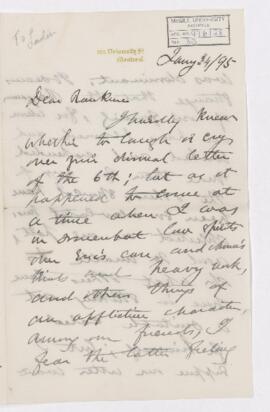 To Leader
McGILL UNIVERSITY
ARCHIVES
ACC. NO.
REF.
University St
Montreal
Jany 24/95
Dear Rankine
I hardly know
whether to laugh or cry
over your dismal letter
of the 6th; but as it
happened to come at
a time when I was
in somewhat low spirits
over Eric's case, and Anna's
and heavy work,
and others things of
an afflictive character,
among our friends, I
fear the latter feeling